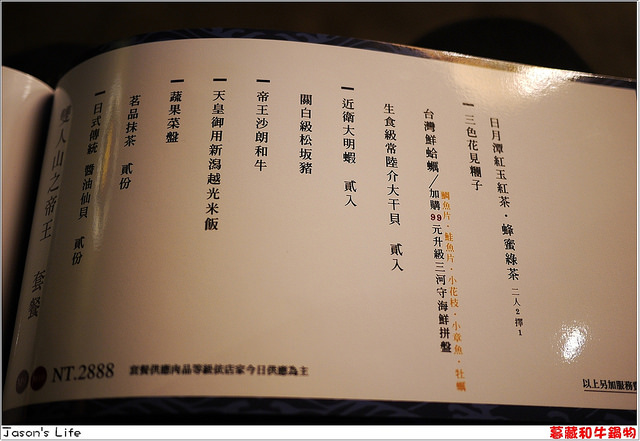 雙人山之帝王 套餐
日式傳統 醬油仙貝 貳份
茗品抹茶 貳份
蔬果菜盤
天皇御用新潟越光米飯
帝王沙朗和牛
關白級松坂豬
近衛大明蝦 貳入
生食級常陸介大干貝 貳入
台灣鮮蛤蠣／加購99元升級三河守海鮮拼盤
鯛魚片．鮭魚片．小花枝．小章魚．牡蠣
三色花見糰子
日月潭紅玉紅茶．蜂蜜綠茶 二人2擇1
NT.2888
套餐供應肉品等級依店家今日供應為主
以上另加服務費
Jason's Life
幕藏和牛鍋物